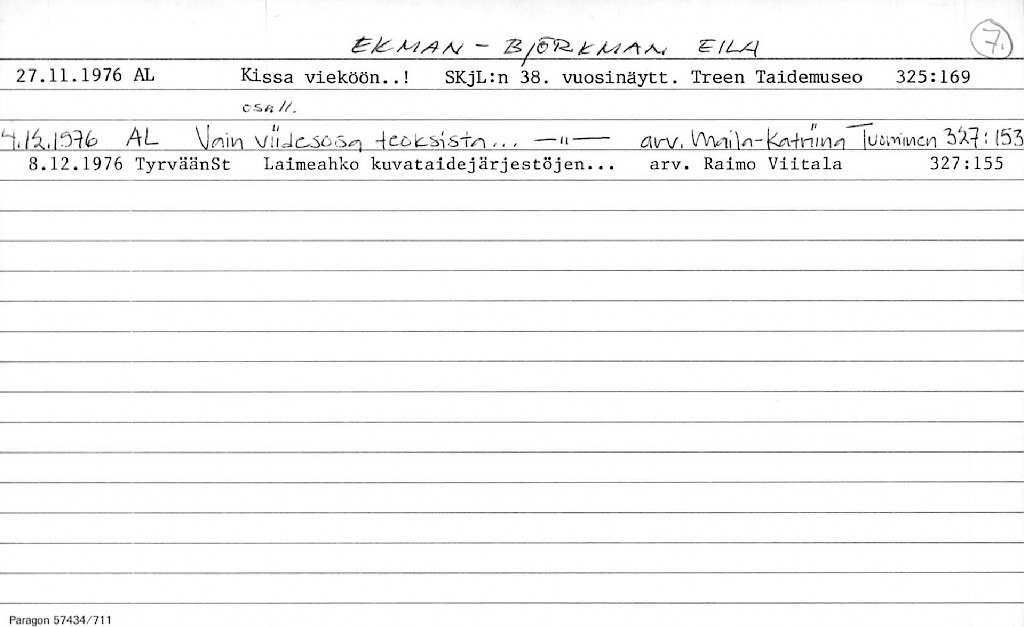 EKMAN - BJÖRKMAN EILA 7.
27.11.1976 AL Kissa vieköön..! SKjL:n 38. vuosinäytt. Treen Taidemuseo 325:169
osall.
4.12.1976 AL Vain viidesosa teoksista... —"— arv. Maila-Katriina Tuominen 327:153
8.12.1976 TyrväänSt Laimeahko kuvataidejärjestöjen... arv. Raimo Viitala 327:155
Paragon 57434/711